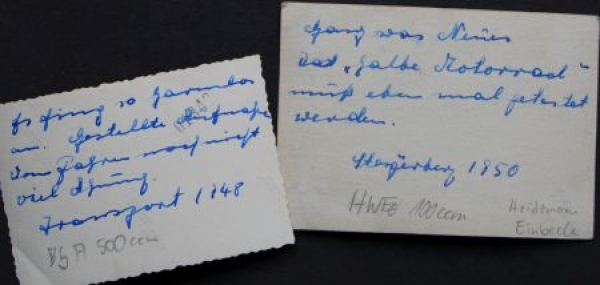 Es fing so harmlos
an. Gestellte Aufnahme
vom Fahren noch nicht
viel Ahnung.
Transport 1948
BSA 500ccm
Ganz was Neues
Das „halbe Motorrad"
muß eben mal getestet
werden.
1950
HWE 100ccm
Heidemann
Einbeck